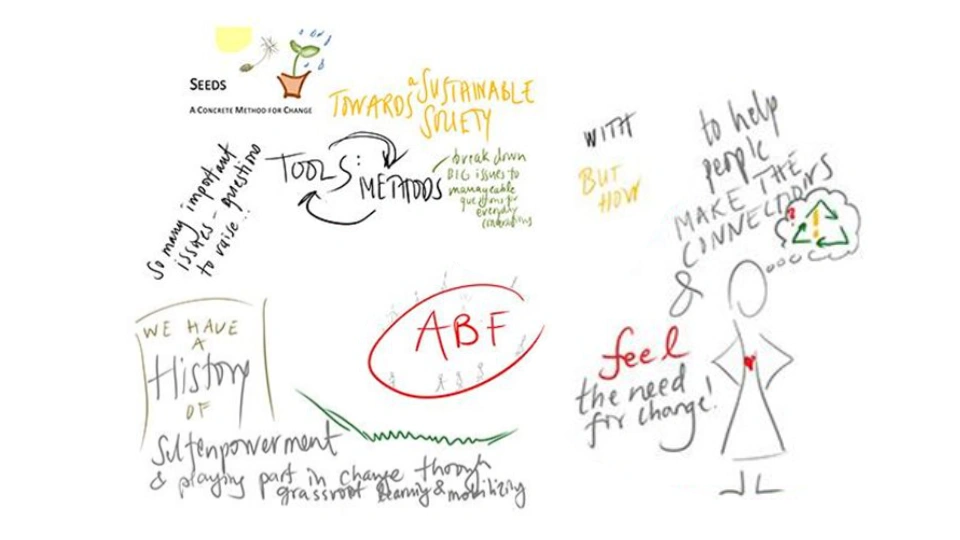 SEEDS
A CONCRETE METHOD FOR CHANGE
TOWARDS a SUSTAINABLE
SOCIETY
TOOLS:
METHODS
break down
BIG issues to
manageable
questions for
everyday
So many important
issues - questions
to raise!
WITH
BUT
HOW
to help
people
MAKE THE
CONNECTIONS
&
feel
the need
for change!
? !
ABF
WE HAVE
A
History
OF
Selfenpowerment
& playing part in change though
grassroot learning & mobilizing